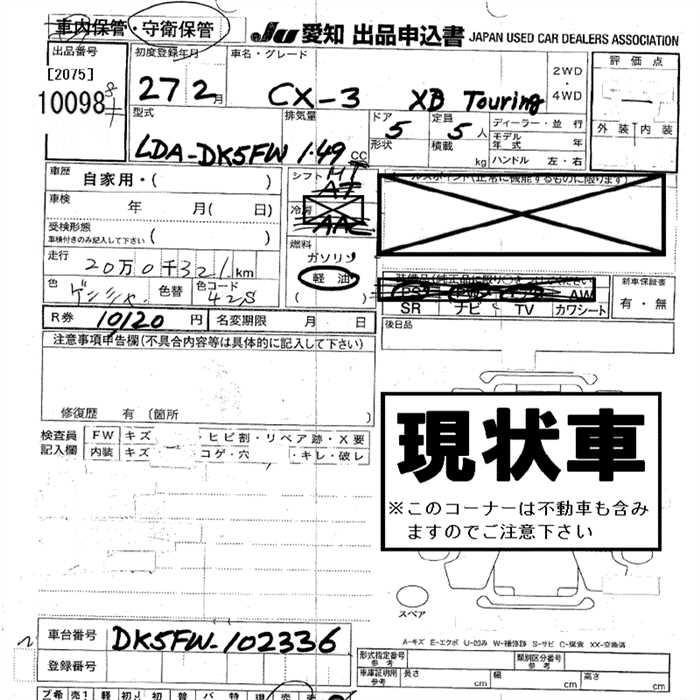 車内保管・守衛保管
JU 愛知 出品申込書 JAPAN USED CAR DEALERS ASSOCIATION
出品番号 初度登録年月 車名・グレード 2WD・4WD 評価点
[2075]
10098
27 2月 CX-3 XB Touring
外装 内装
型式 排気量 ドア 定員 ディーラー・並行
LDA-DK5FW 1.49 CC 5 5人 モデル年式 年
形状 積載 kg ハンドル 左・右
車歴 自家用・( ) シフト MT
AT
車検 年 月( 日) 冷房 AAC
受検形態
車検付きのみ記入して下さい ( )
燃料
ガソリン
軽油
( )
走行 20万0千321km
色 色替 色コード 42S
新車保証書
有・無
AW
SR ナビ TV カワシート
R券 10120円 名変期限 月 日
後日品
注意事項申告欄(不具合内容等は具体的に記入して下さい)
修復歴 有 〔箇所 )
検査員記入欄 FW キズ ・ヒビ割・リペア跡・X要
内装 キズ コゲ・穴 ・キレ・破レ
現状車
※このコーナーは不動車も含み
ますのでご注意下さい
スペア
A-キズ E-エクボ U-凹み W-補修跡 S-サビ C-腐食 XX-交換済
車台番号 DK5FW-102336
登録番号
形式指定番号 参考 類別区分番号 参考
車庫証明用 参考 長さ cm 幅 cm 高さ cm